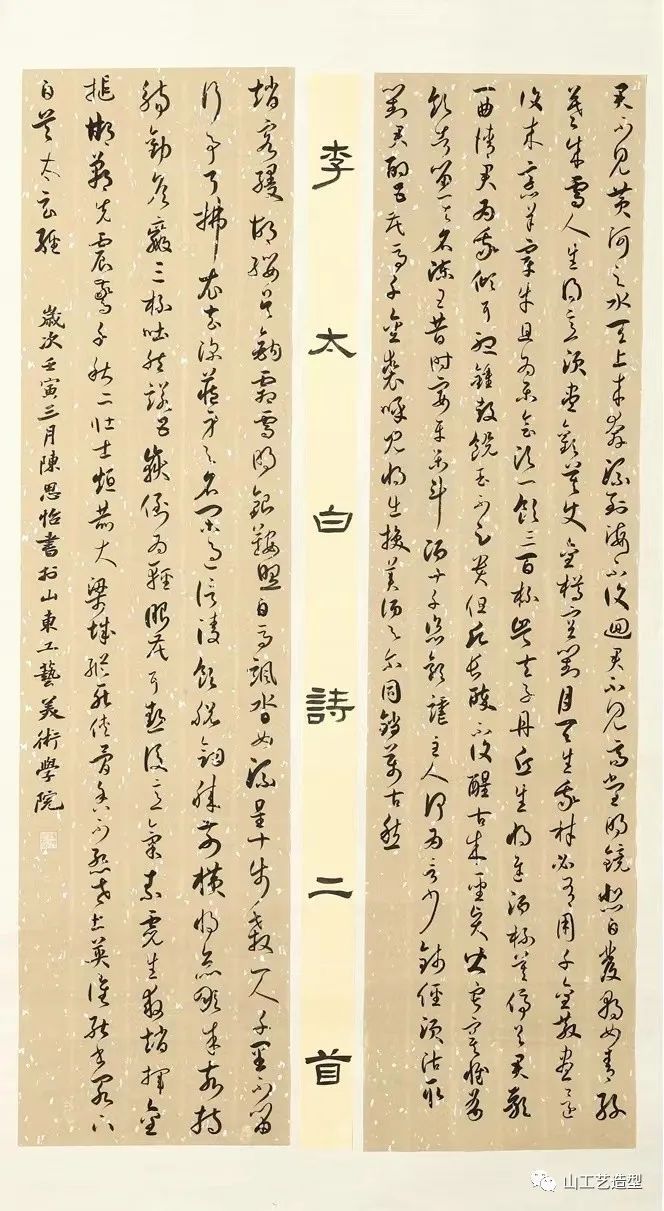 君不見黃河之水天上來奔流到海不復迴君不見高堂明鏡悲白髮朝如青絲
暮成雪人生得意須盡歡莫使金樽空對月天生我材必有用千金散盡還
復來烹羊宰牛且為樂會須一飲三百杯岑夫子丹丘生將進酒杯莫停與君歌
一曲請君為我傾耳聽鐘鼓饌玉不足貴但願長醉不復醒古來聖賢皆寂寞惟有
飲者留其名陳王昔時宴平樂斗酒十千恣歡謔主人何為言少錢徑須沽取
對君酌五花馬千金裘呼兒將出換美酒與爾同銷萬古愁
李太白詩二首
趙客縵胡纓吳鉤霜雪明銀鞍照白馬颯沓如流星十步殺一人千里不留
行事了拂衣去深藏身與名閑過信陵飲脫劍膝前橫將炙啖朱亥持
觴勸侯嬴三杯吐然諾五嶽倒為輕眼花耳熱後意氣素霓生救趙揮金
槌邯鄲先震驚千秋二壯士烜赫大梁城縱死俠骨香不慚世上英誰能書閣下
白首太玄經
歲次壬寅三月陳思怡書於山東工藝美術學院
山工艺造型